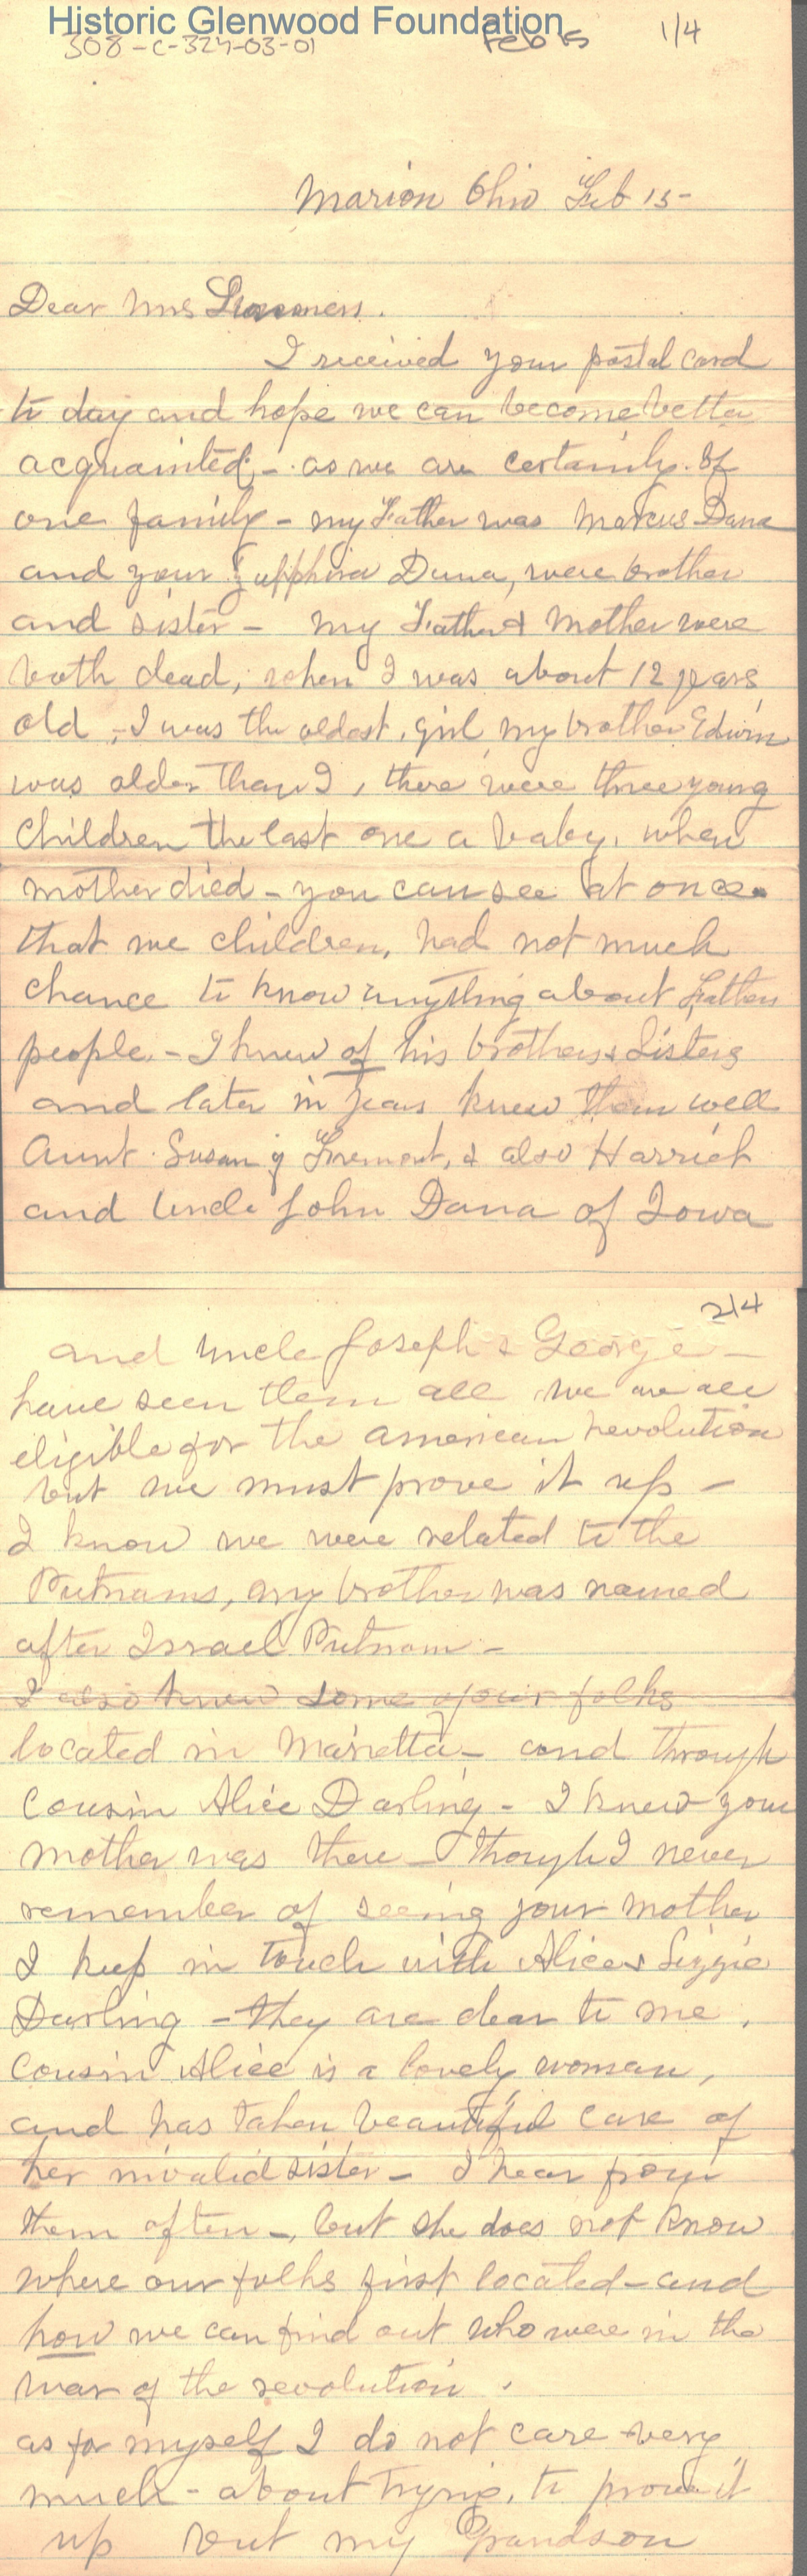 Historic Glenwood Foundation
308-C-324-03-01 Feb 15 1/4
Marion Ohio Feb 15-
Dear Mrs
I received your postal card
to day and hope we can become better
acquainted,- as we are certainly of
one family - my Father was Marcus Dana
and your Dana, were brother
and sister - my Father & Mother were
both dead, when I was about 12 years
old, - I was the oldest, girl, my brother Edwin
was older than I, there were three young
children the last one a baby, when
mother died - you can see at once
that we children, had not much
chance to know anything about Fathers
people. - I knew of his brothers & Sisters
and later in years knew them well
Aunt Susan of Fremont, & also Harriet
and Uncle John Dana of Iowa
2/4
and Uncle Joseph & George -
have seen them all we are all
eligible for the American revolution
but we must prove it up -
I know we were related to the
Putnams, my brother was named
after Israel Putnam -
I also knew some of your folks
located in Marietta - and through
Cousin Alice Darling - I knew your
mother was there - though I never
remember of seeing your mother
I keep in touch with Alice & Lizzie
Darling - they are dear to me.
Cousin Alice is a lovely woman,
and has taken beautiful care of
her invalid sister - I hear from
them often -, but she does not know
where our folks first located - and
how we can find out who were in the
war of the revolution.
as for myself I do not care very
much - about trying, to prove it
up but my Grandson